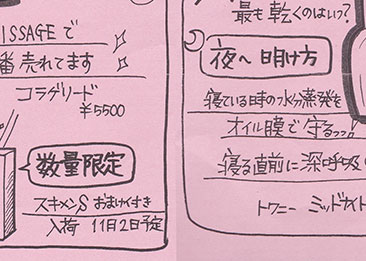 ISSAGE で
番 売れてます
コラグリード
¥5500
数量限定
スキメンS おまけ付き
入荷 11月2日予定
最も乾くのはいつ?
夜へ 明け方
寝ている時の水分蒸発を
オイル膜で守るっっ!
寝る直前に深呼吸
トワニー ミッドナイト